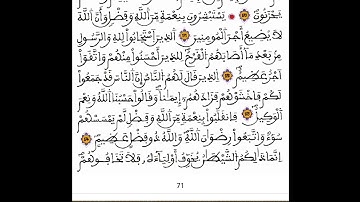 يَحْزَنُونَ يَسْتَبْشِرُونَ بِنِعْمَةٍ مِّنَ اَللَّهِ وَفَضْلٍ وَأَنَّ اَللَّهَ
لَا يُضِيعُ أَجْرَ اَلْمُومِنِينَ اَلذِينَ اَسْتَجَابُواْ لِلهِ وَالرَّسُولِ
مِنۢ بَعْدِ مَا أَصَابَهُمُ اُلْقَرْحُ لِلذِينَ أَحْسَنُواْ مِنْهُمْ وَاتَّقَوَاْ
اَجْرٌ عَظِيمٌ اِلذِينَ قَالَ لَهُمُ اُلنَّاسُ إِنَّ اَلنَّاسَ قَدْ جَمَعُواْ
لَكُمْ فَاخْشَوْهُمْ فَزَادَهُمُۥ إِيمَٰنًا وَقَالُواْ حَسْبُنَا اَللَّهُ وَنِعْمَ
اَلْوَكِيلُ فَانقَلَبُواْ بِنِعْمَةٍ مِّنَ اَللَّهِ وَفَضْلٍ لَّمْ يَمْسَسْهُمْ
سُوٓءٌ وَاتَّبَعُواْ رِضْوَٰنَ اَللَّهِ وَاللَّهُ ذُو فَضْلٍ عَظِيمٍ
اِنَّمَا ذَٰلِكُمُ اُلشَّيْطَٰنُ يُخَوِّفُ أَوْلِيَآءَهُۥ فَلَا تَخَافُوهُمْ
71